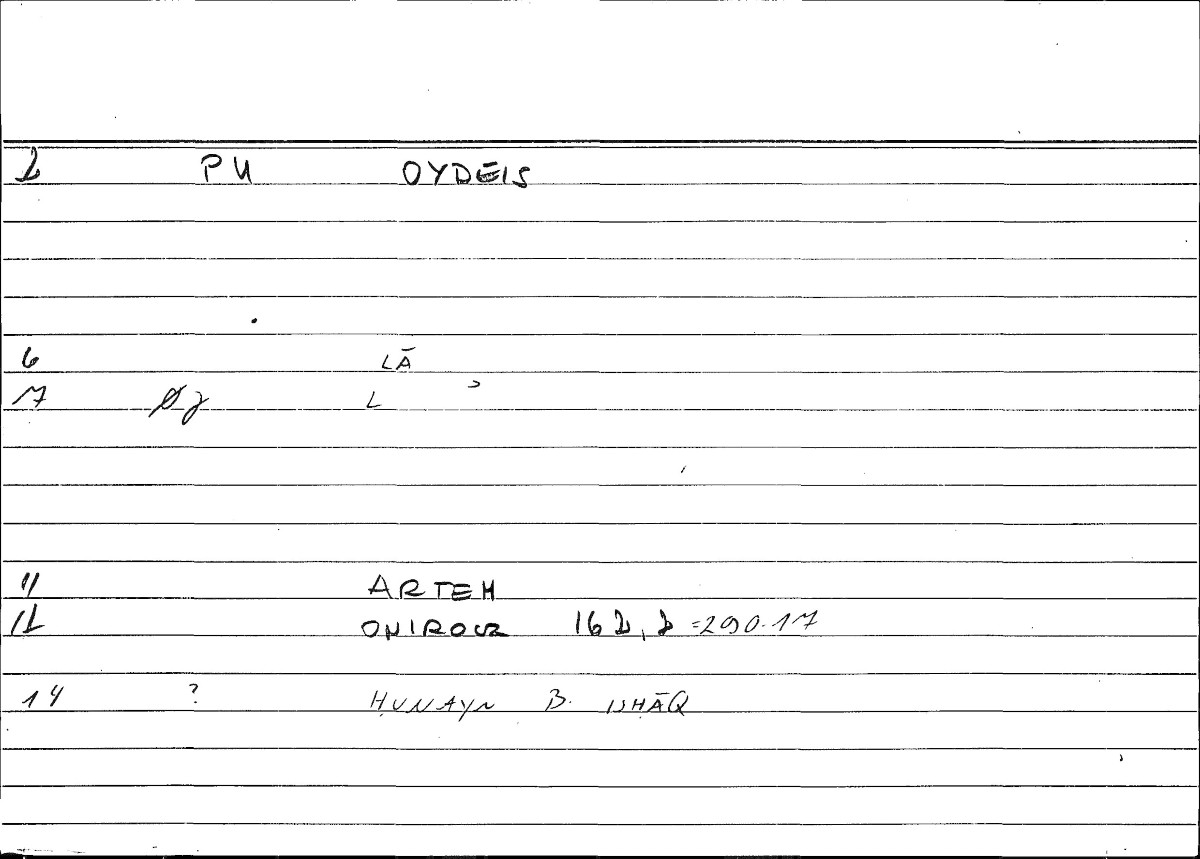 2 PU OYDEIS
6 LĀ
7 Øj L
11 ARTEM
12 ONIROCR 162, 2 =290.17
14 ? ḤUNAYN B. ISḤĀQ